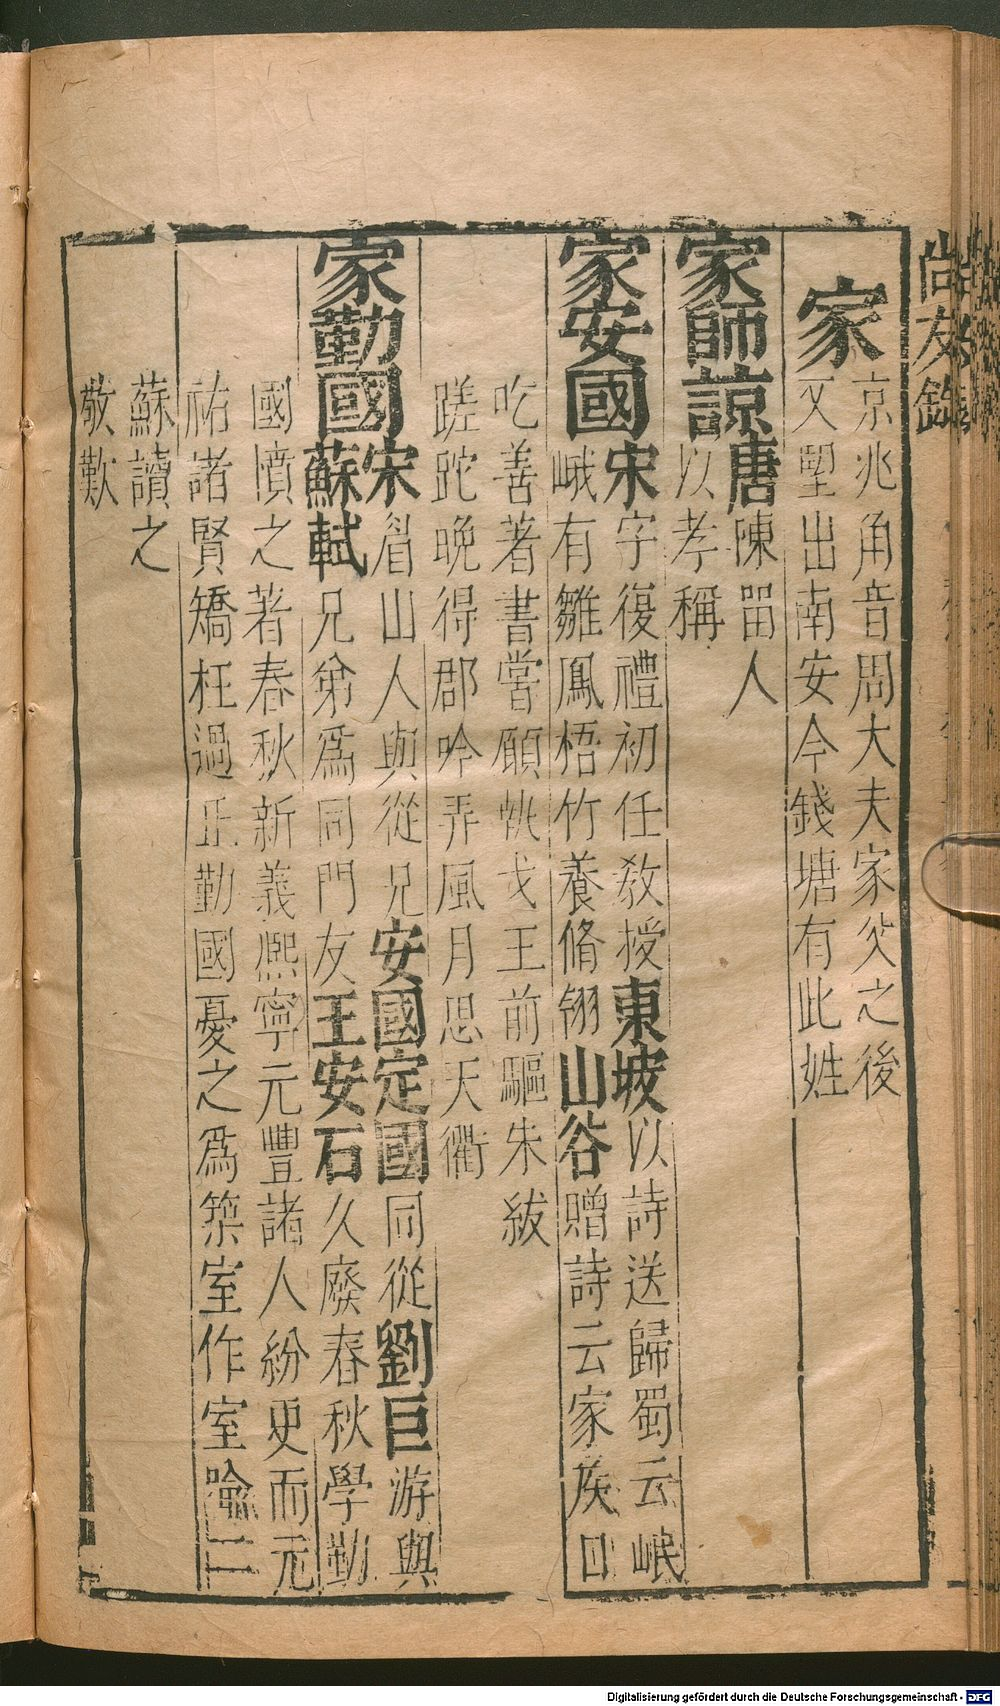 尚友錄
家
京兆角音周大夫家父之後
又壄出南安今錢塘有此姓
家師諒
唐陳畱人
以孝稱
家安國
宋字復禮初任敎授東坡以詩送歸蜀云岷
峨有雛鳳梧竹養脩翎山谷贈詩云家族曰
吃善著書嘗願執戈王前驅朱紱
蹉跎晚得郡吟弄風月思天衢
家勤國
宋眉山人與從兄安國定國同從劉巨游與
蘇軾兄弟爲同門友王安石久廢春秋學勤
國憤之著春秋新義熈寧元豐諸人紛更而元
祐諸賢矯枉過正勤國憂之爲築室作室喻二
蘇讀之
敬歎
Digitalisierung gefördert durch die Deutsche Forschungsgemeinschaft - DFG